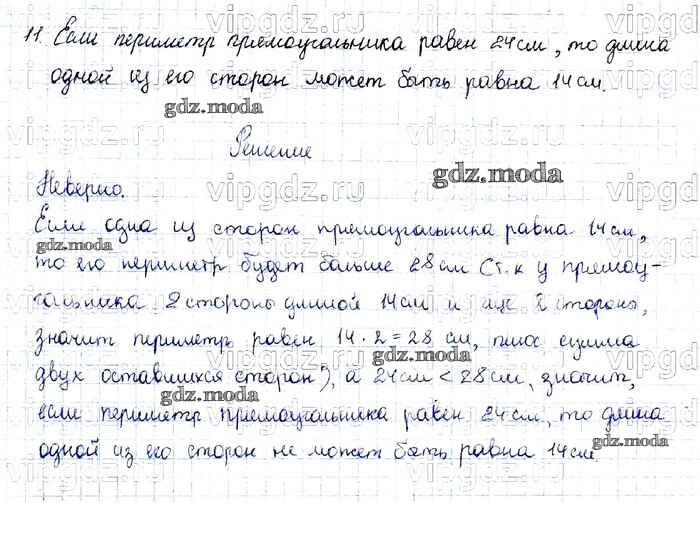 11. Если периметр прямоугольника равен 24 см, то длина
одной из его сторон может быть равна 14 см.
gdz.moda
Решение
gdz.moda
Неверно.
Если одна из сторон прямоугольника равна 14 см,
gdz.moda
то его периметр будет больше 28 см (т.к у прямоу-
гольника 2 стороны длиной 14 см и еще 2 стороны,
значит периметр равен 14 · 2 = 28 см, плюс сумма
gdz.moda
двух оставшихся сторон), а 24 см < 28 см, значит,
gdz.moda
если периметр прямоугольника равен 24 см, то длина
одной из его сторон не может быть равна 14 см.
gdz.moda
vipgdz.ru